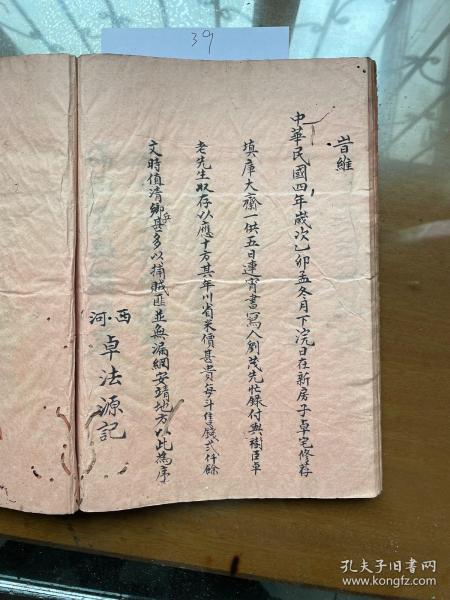 39
昔維
中華民國四年歲次乙卯孟冬月下浣日在新房子卓宅修荐
填庫大齋一供五日連宵書寫人劉茂先忙錄付與樹臣卓
老先生收存以應十方其年川省米價甚貴每斗售錢弍仟餘
文時值清鄉兵甚多以捕賊匪並無漏網安靖地方以此為序
西河
卓法源記
孔夫子旧书网
www.kongfz.com